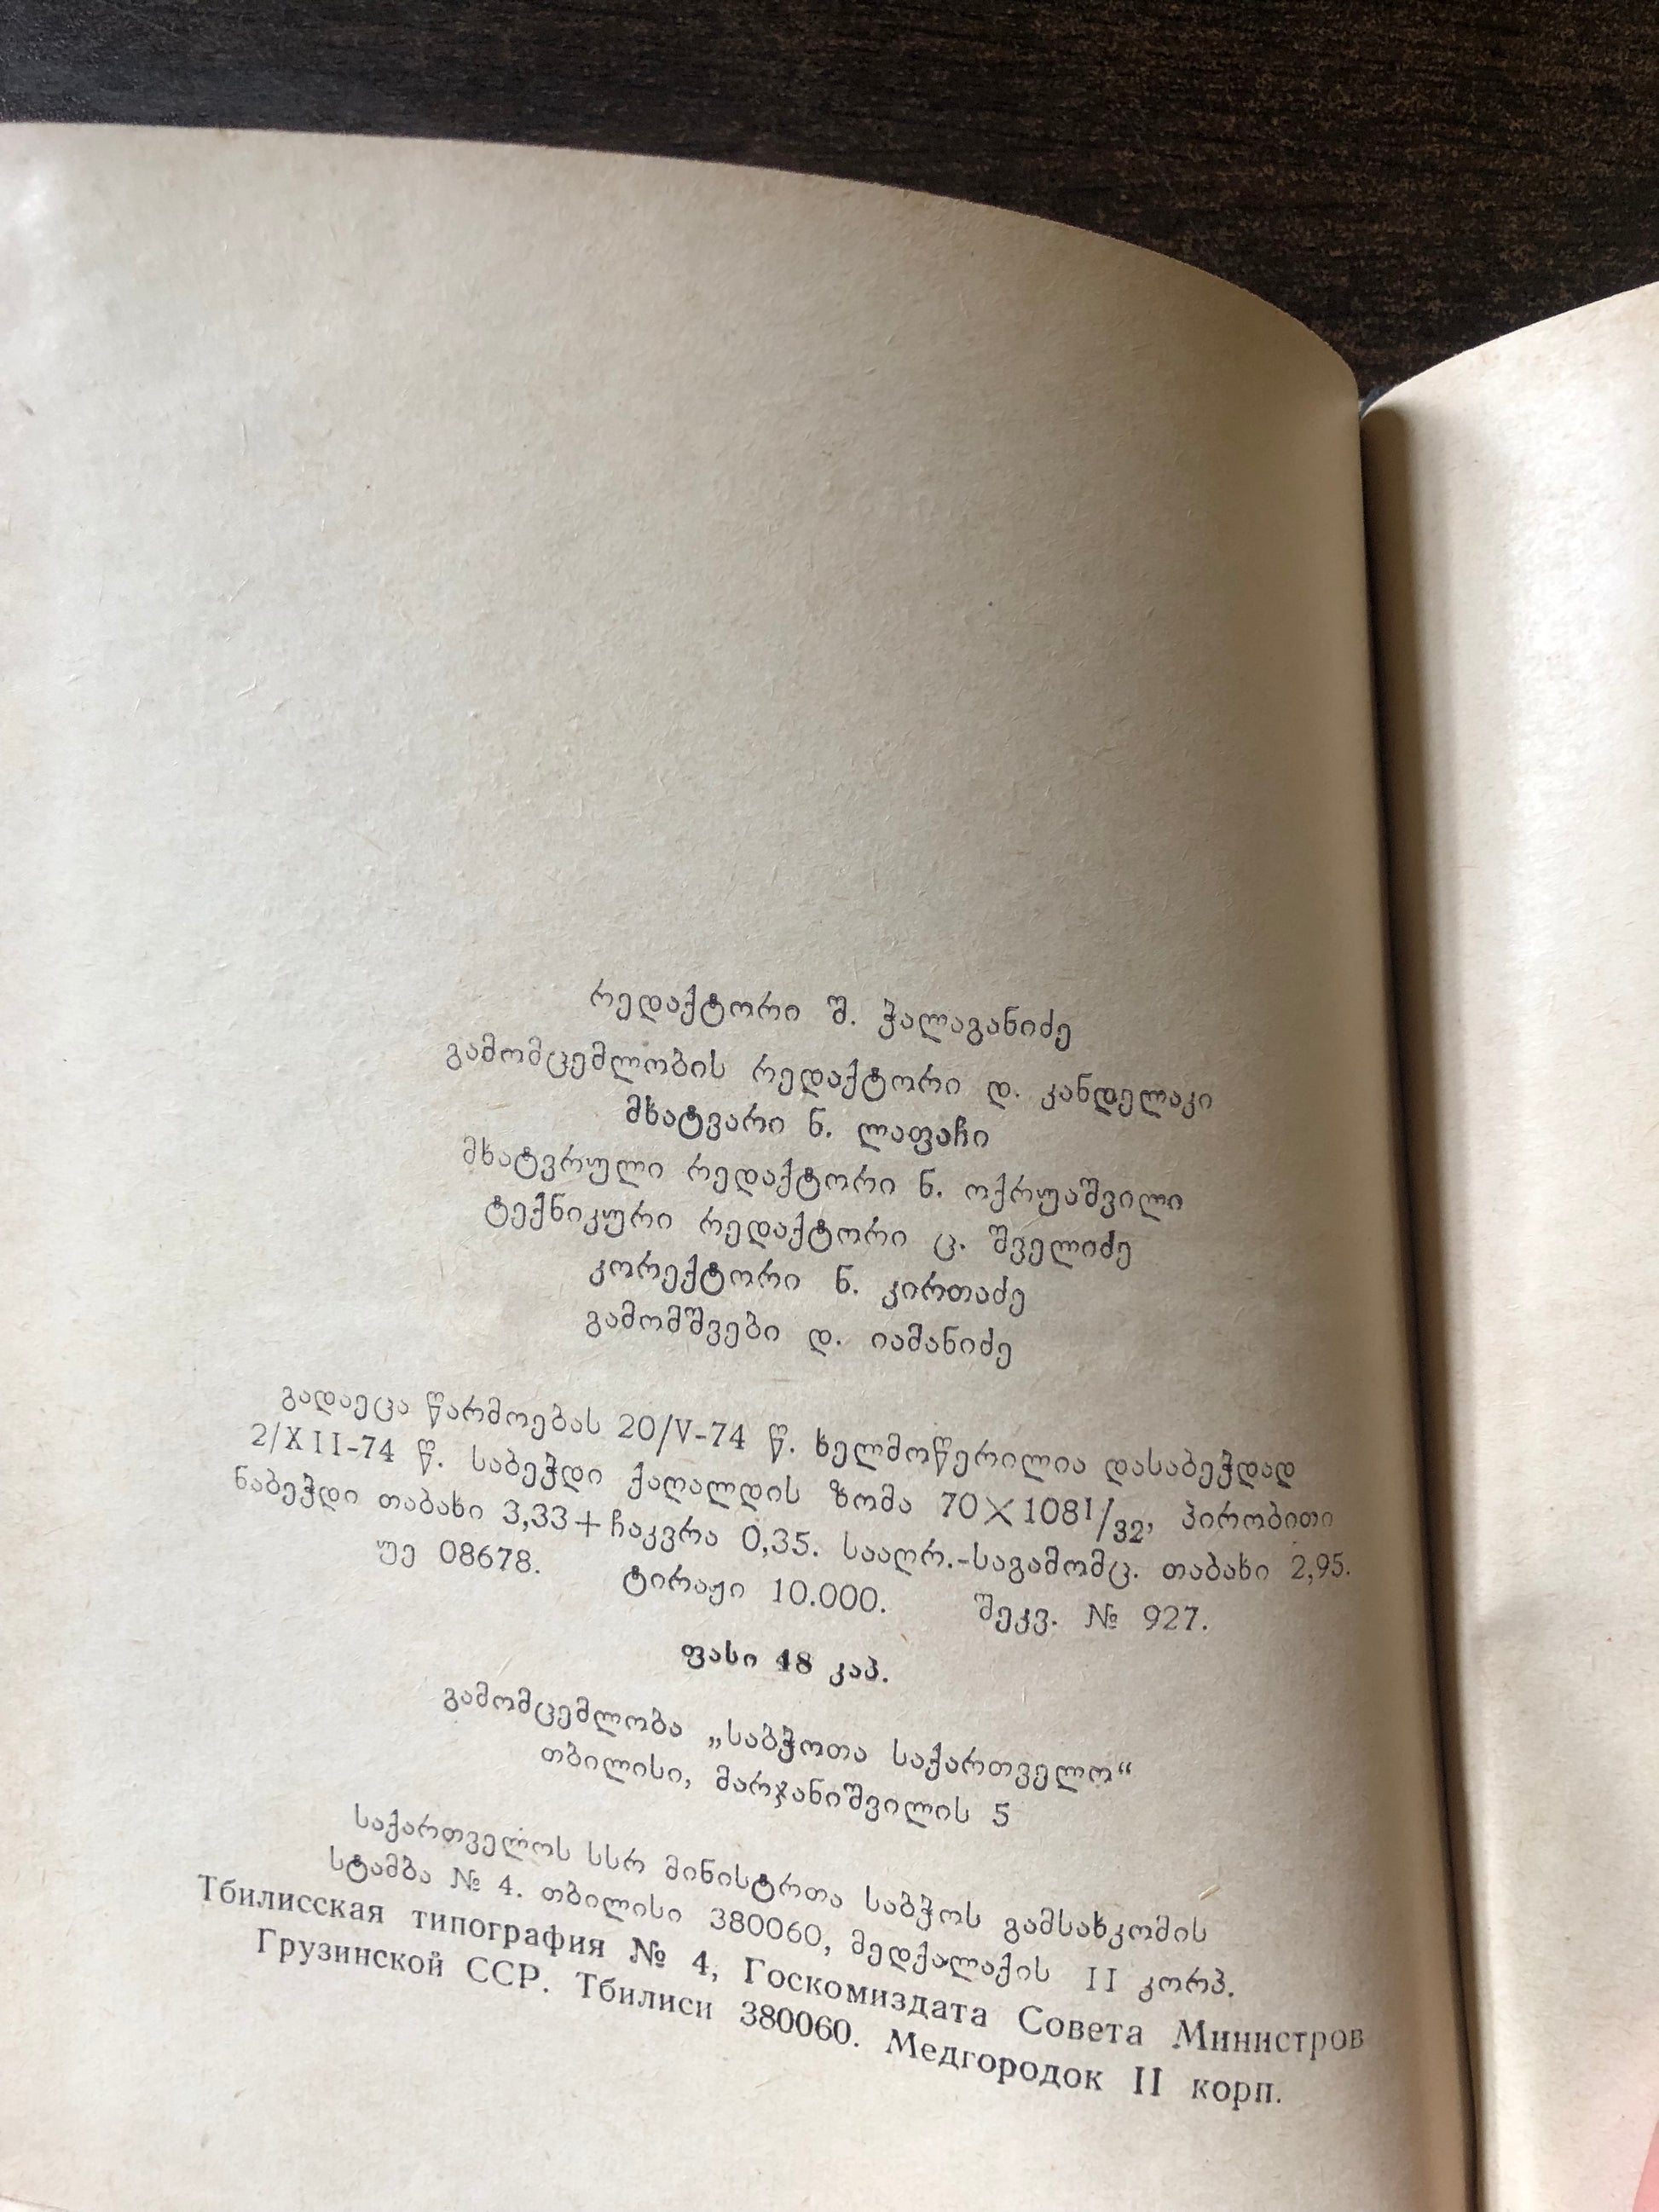 რედაქტორი შ. ჭალაგანიძე
გამომცემლობის რედაქტორი დ. კანდელაკი
მხატვარი ნ. ლაფაჩი
მხატვრული რედაქტორი ნ. ოქრუაშვილი
ტექნიკური რედაქტორი ც. შველიძე
კორექტორი ნ. კირთაძე
გამომშვები დ. იამანიძე
გადაეცა წარმოებას 20/V-74 წ. ხელმოწერილია დასაბეჭდად
2/XII-74 წ. საბეჭდი ქაღალდის ზომა 70×108 1/32, პირობითი
ნაბეჭდი თაბახი 3,33+ჩაკვრა 0,35. სააღრ.-საგამომც. თაბახი 2,95.
უე 08678. ტირაჟი 10.000. შეკვ. № 927.
ფასი 48 კაპ.
გამომცემლობა „საბჭოთა საქართველო“
თბილისი, მარჯანიშვილის 5
საქართველოს სსრ მინისტრთა საბჭოს გამსახკომის
სტამბა № 4. თბილისი 380060, მედქალაქის II კორპ.
Тбилисская типография № 4, Госкомиздата Совета Министров
Грузинской ССР. Тбилиси 380060. Медгородок II корп.